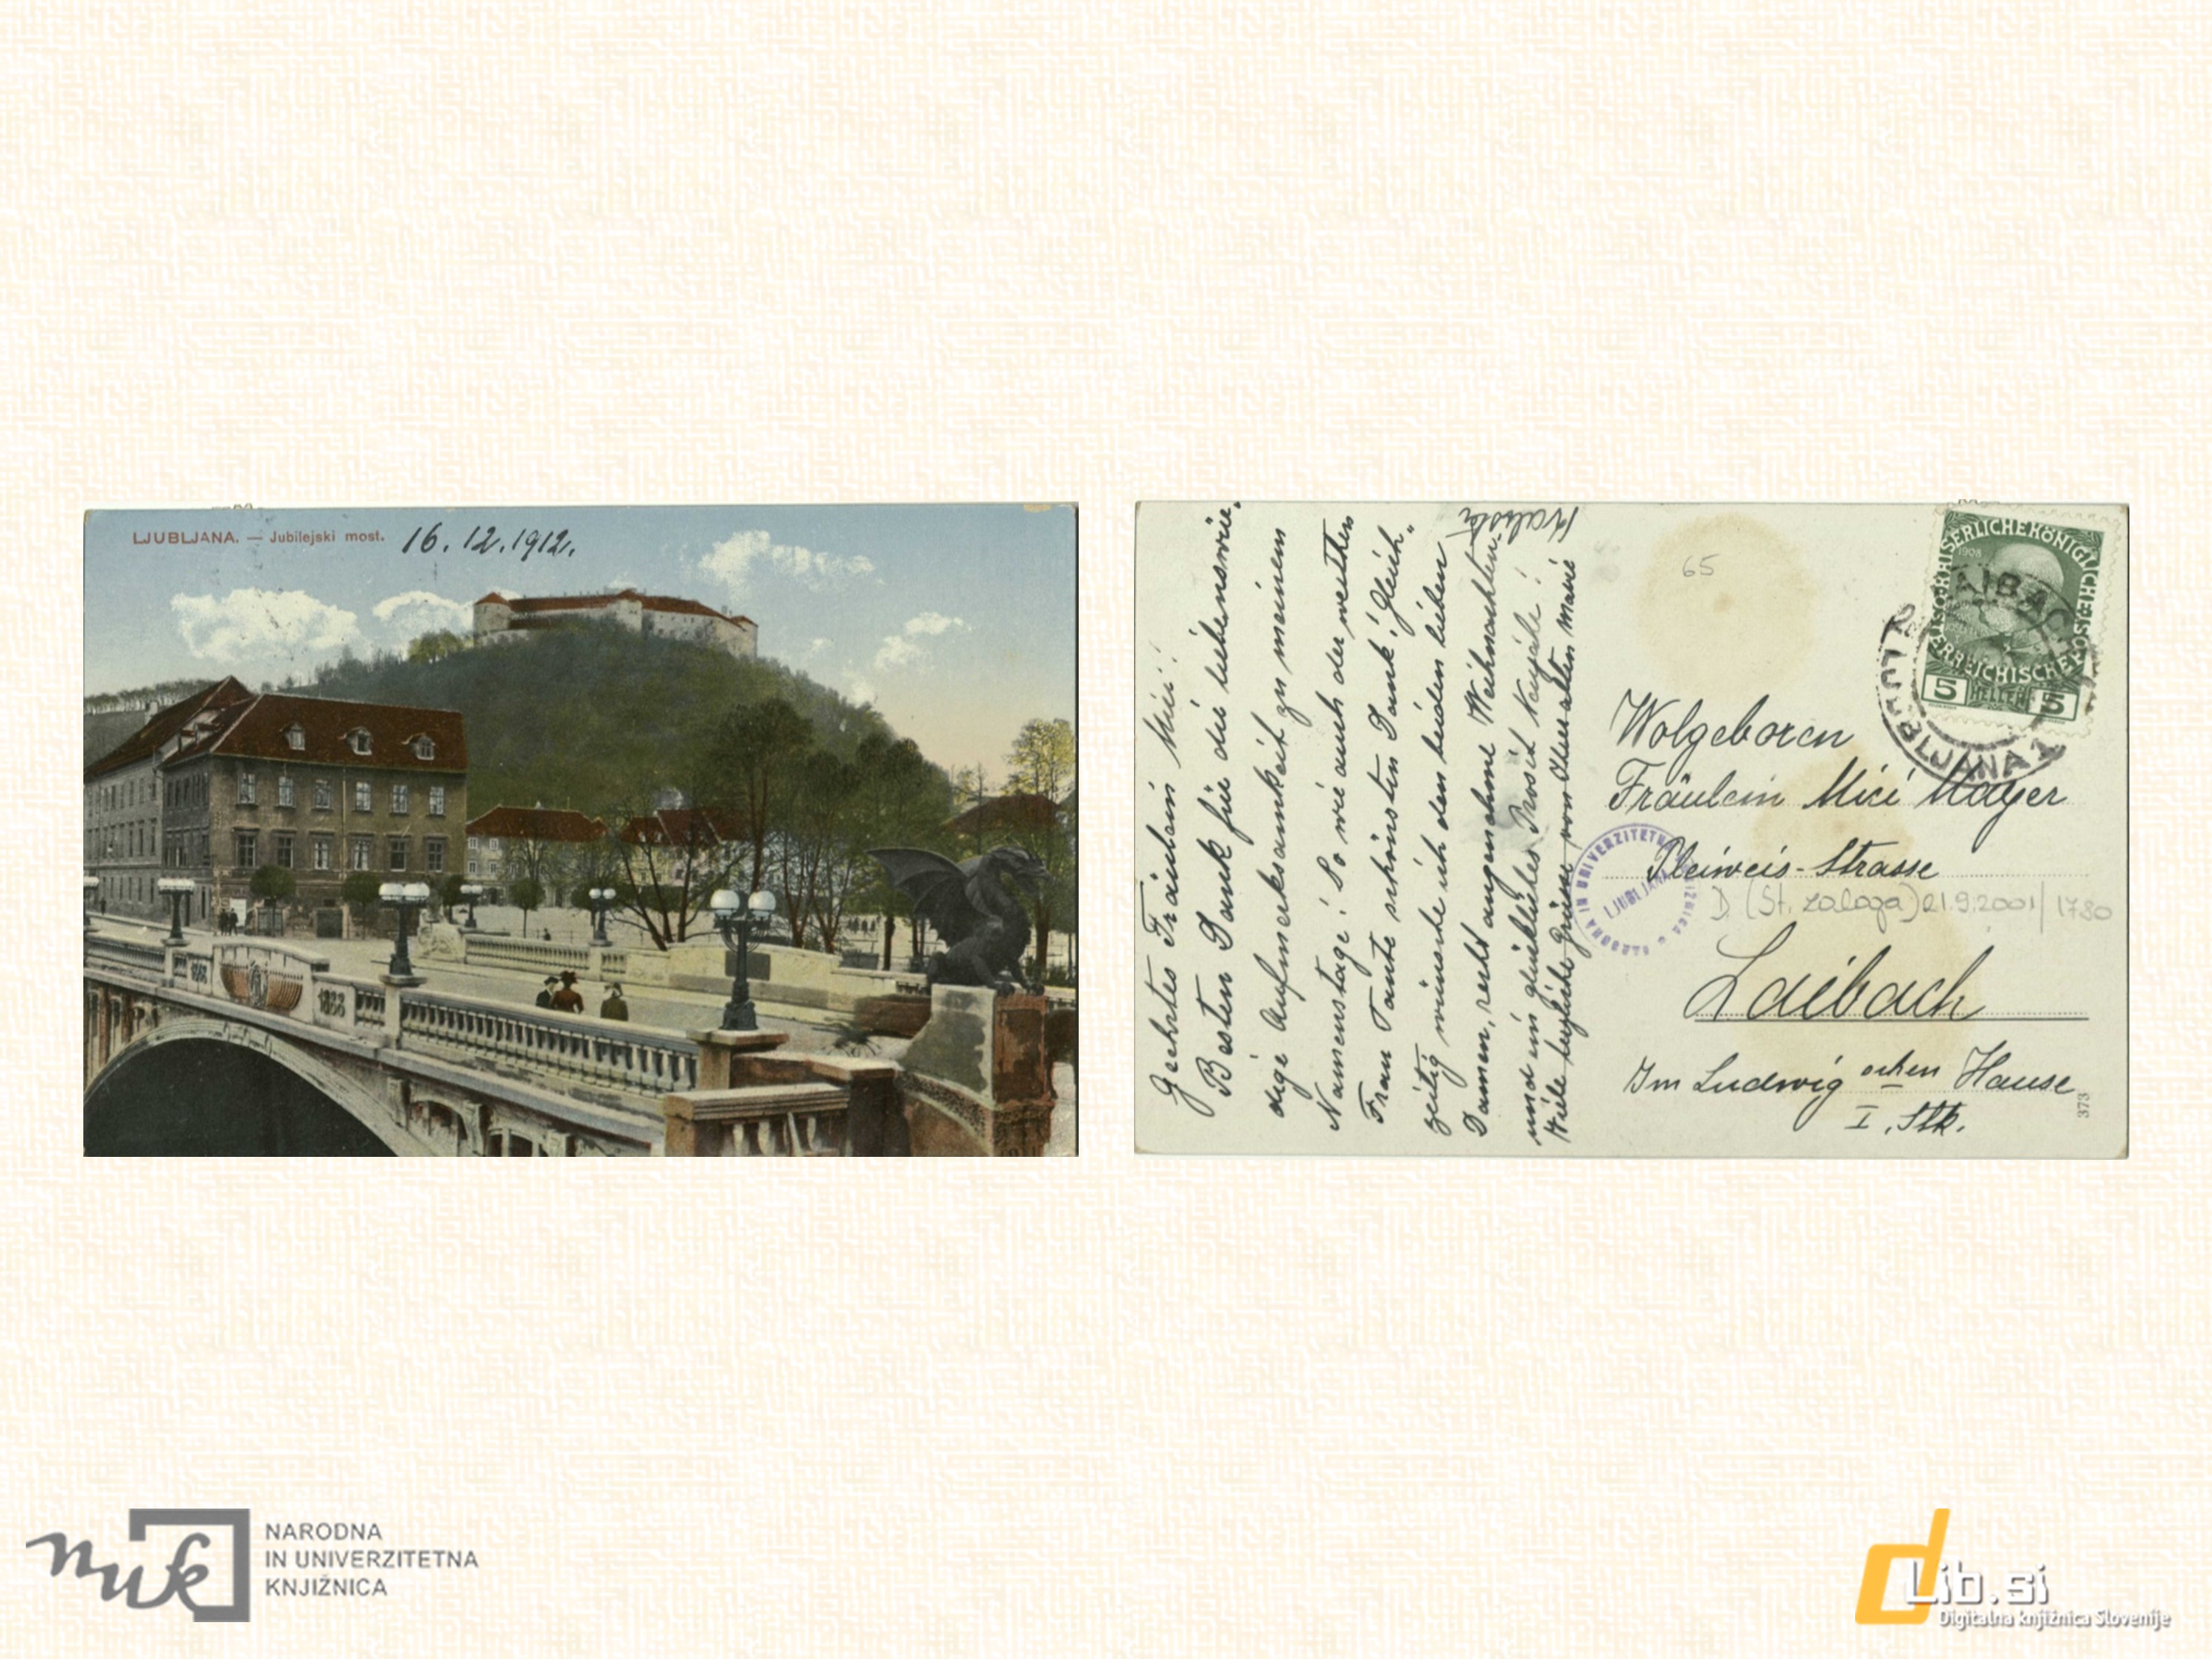 LJUBLJANA. — Jubilejski most. 16.12.1912.
1888
Geehrtes Fräulein Mici!
Besten Dank für die liebenswür-
dige Aufmerksamkeit zu meinem
Namenstage! So wie auch der werthen
Frau Tante schönsten Dank! Gleich-
zeitig wünsche ich den beiden lieben
Damen, recht angenehme Weihnachten
und ein glückliches Prosit Neujahr!
Viele herzliche Grüsse von Ihrer alten Marie
65
KAISERLICHE KÖNIGLICHE
ÖSTERREICHISCHE POST
1908
5 HELLER 5
LAIBACH
LJUBLJANA 1
Wolgeboren
Fräulein Mici Mayer
Bleiweis-Strasse
NARODNA IN UNIVERZITETNA KNJIŽNICA
LJUBLJANA
D (St. zaloga) 21.9.2001/1780
Laibach
Im Ludwig'schen Hause
I. Stk.
373
nuk
NARODNA
IN UNIVERZITETNA
KNJIŽNICA
dLib.si
Digitalna knjižnica Slovenije